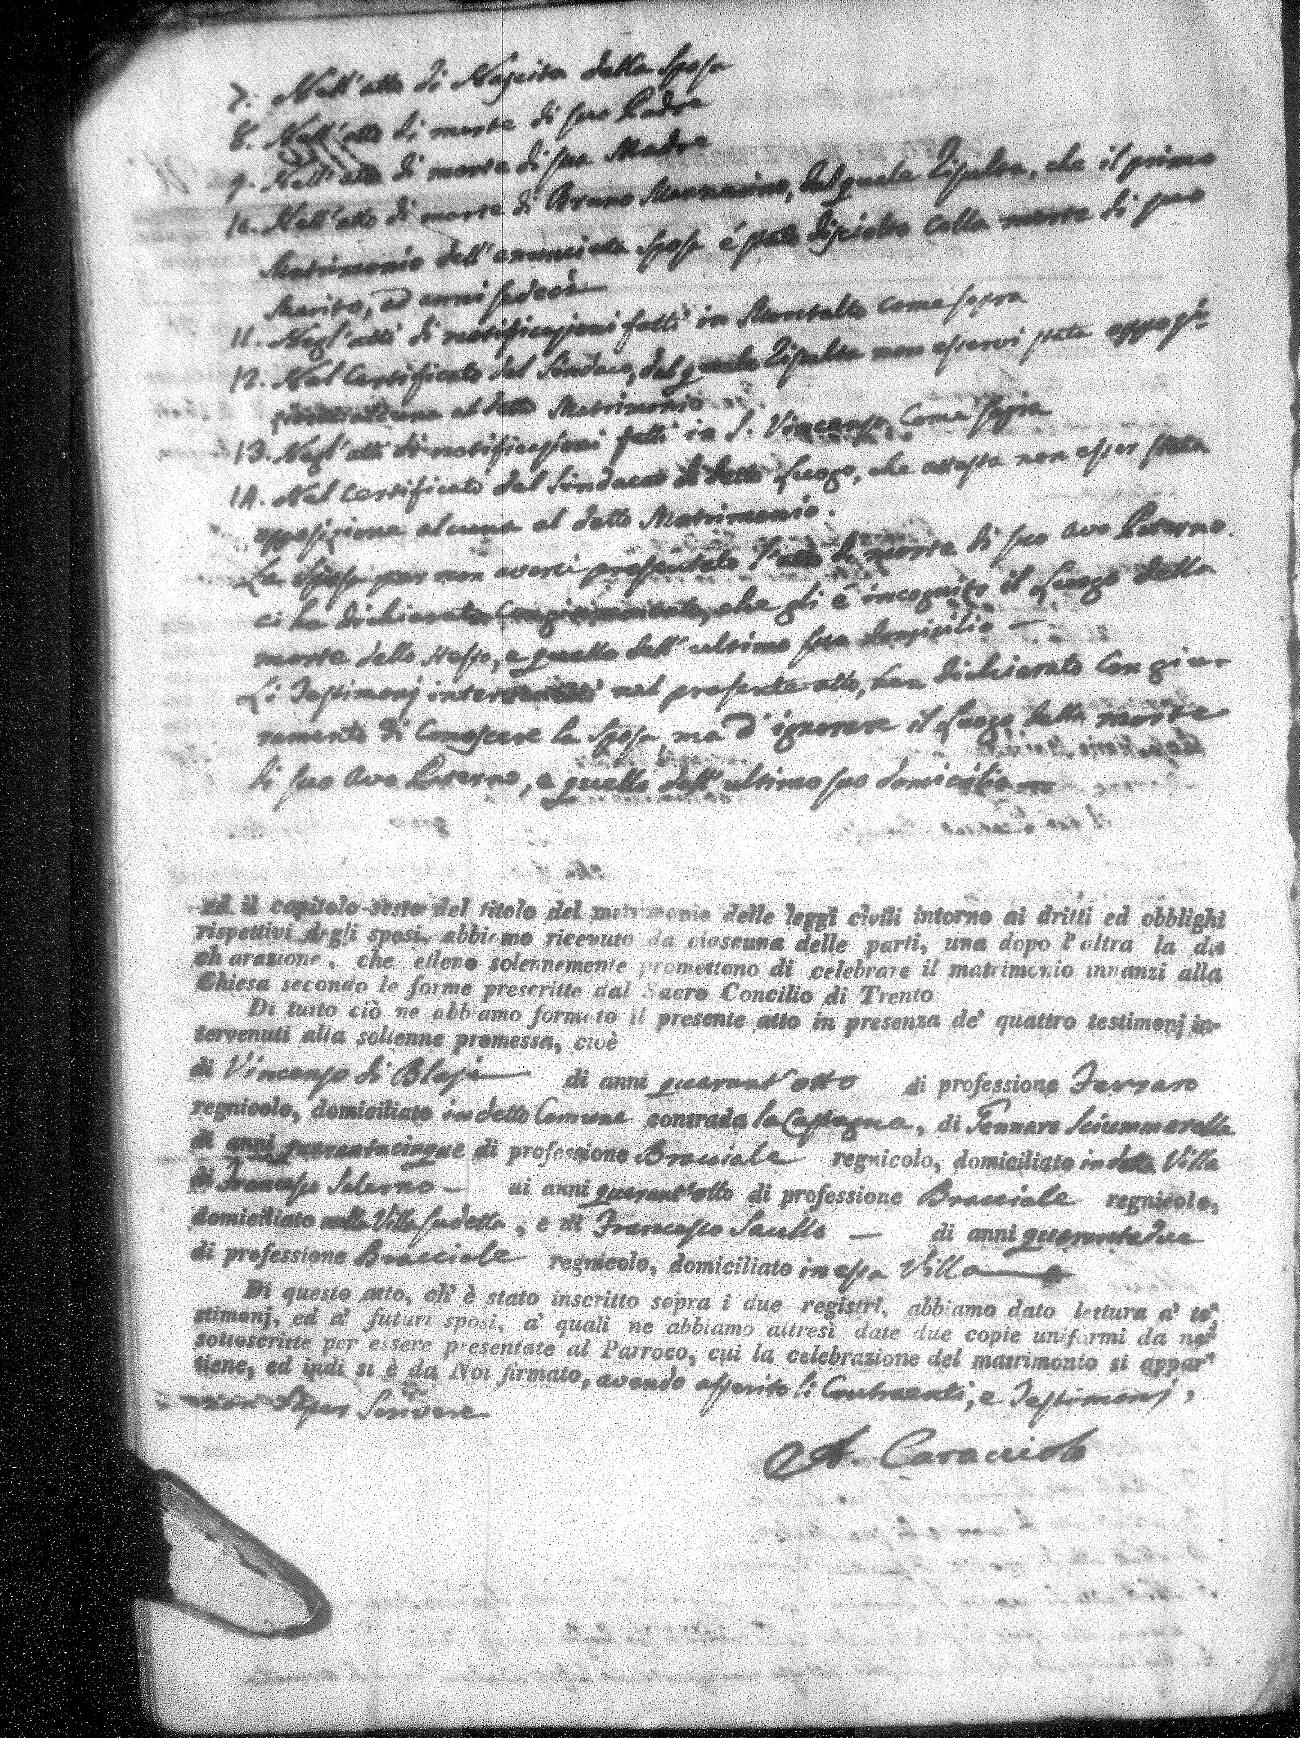 7. Nell'atto di Nascita della Sposa
8. Nell'atto di morte di suo Padre
9. Nell'atto di morte di sua Madre
10. Nell'atto di morte di Bruno, dal quale risulta, che il primo
Matrimonio dell'anunciata sposa é stato disciolto colla morte di suo
Marito, ad anni
11. Negl'atti di notificazioni fatti in Montalto come sopra
12. Nel Certificato del Sindaco, dal quale risulta non esservi stata
al detto Matrimonio
13. Negl'atti di notificazioni fatti in S. Vincenzo Come sopra
14. Nel Certificato del Sindaco di detto Luogo, che attesta non esser stata
opposizione alcuna al detto Matrimonio.
La Sposa per non averci presentato l'atto di morte di suo avo Paterno
ci ha dichiarato, che gli é incognito il Luogo della
morte dello stesso, e quello dell'ultimo suo domicilio —
Li Testimonj intervenuti nel presente atto, han dichiarato con giu-
ramento di Conoscere la Sposa, ma d'ignorare il Luogo della morte
di suo avo Paterno, e quello dell'ultimo suo domicilio
ed il capitolo sesto del titolo del matrimonio delle leggi civili intorno ai dritti ed obblighi
rispettivi degli sposi, abbiamo ricevuto da ciascuna delle parti, una dopo l'altra la di
charazione, che elleno solennemente promettono di celebrare il matrimonio innanzi alla
Chiesa secondo le forme prescritte dal Sacro Concilio di Trento
Di tutto ciò ne abbiamo formato il presente atto in presenza de' quattro testimonj in-
tervenuti alla solenne promessa, cioè
di Vincenzo di Blasi — di anni quarant'otto di professione Ferraro
regnicolo, domiciliato in detto Comune contrada la Castagna, di Gennaro Sciummarella
di anni quarantacinque di professione Bracciale regnicolo, domiciliato in detta Villa
di Francesco Salerno — di anni quarant'otto di professione Bracciale regnicolo,
domiciliato nella Villa sudetta, e di Francesco — di anni quarantadue
di professione Bracciale regnicolo, domiciliato in essa Villa —
Di questo atto, ch' è stato inscritto sopra i due registri, abbiamo dato lettura a' te-
stimonj, ed a' futuri sposi, a' quali ne abbiamo altresì date due copie uniformi da noi
sottoscritte per essere presentate al Parroco, cui la celebrazione del matrimonio si appar-
tiene, ed indi si è da Noi firmato, avendo asserito li Contraenti, e Testimonj,
non saper scrivere
A. Caracciolo